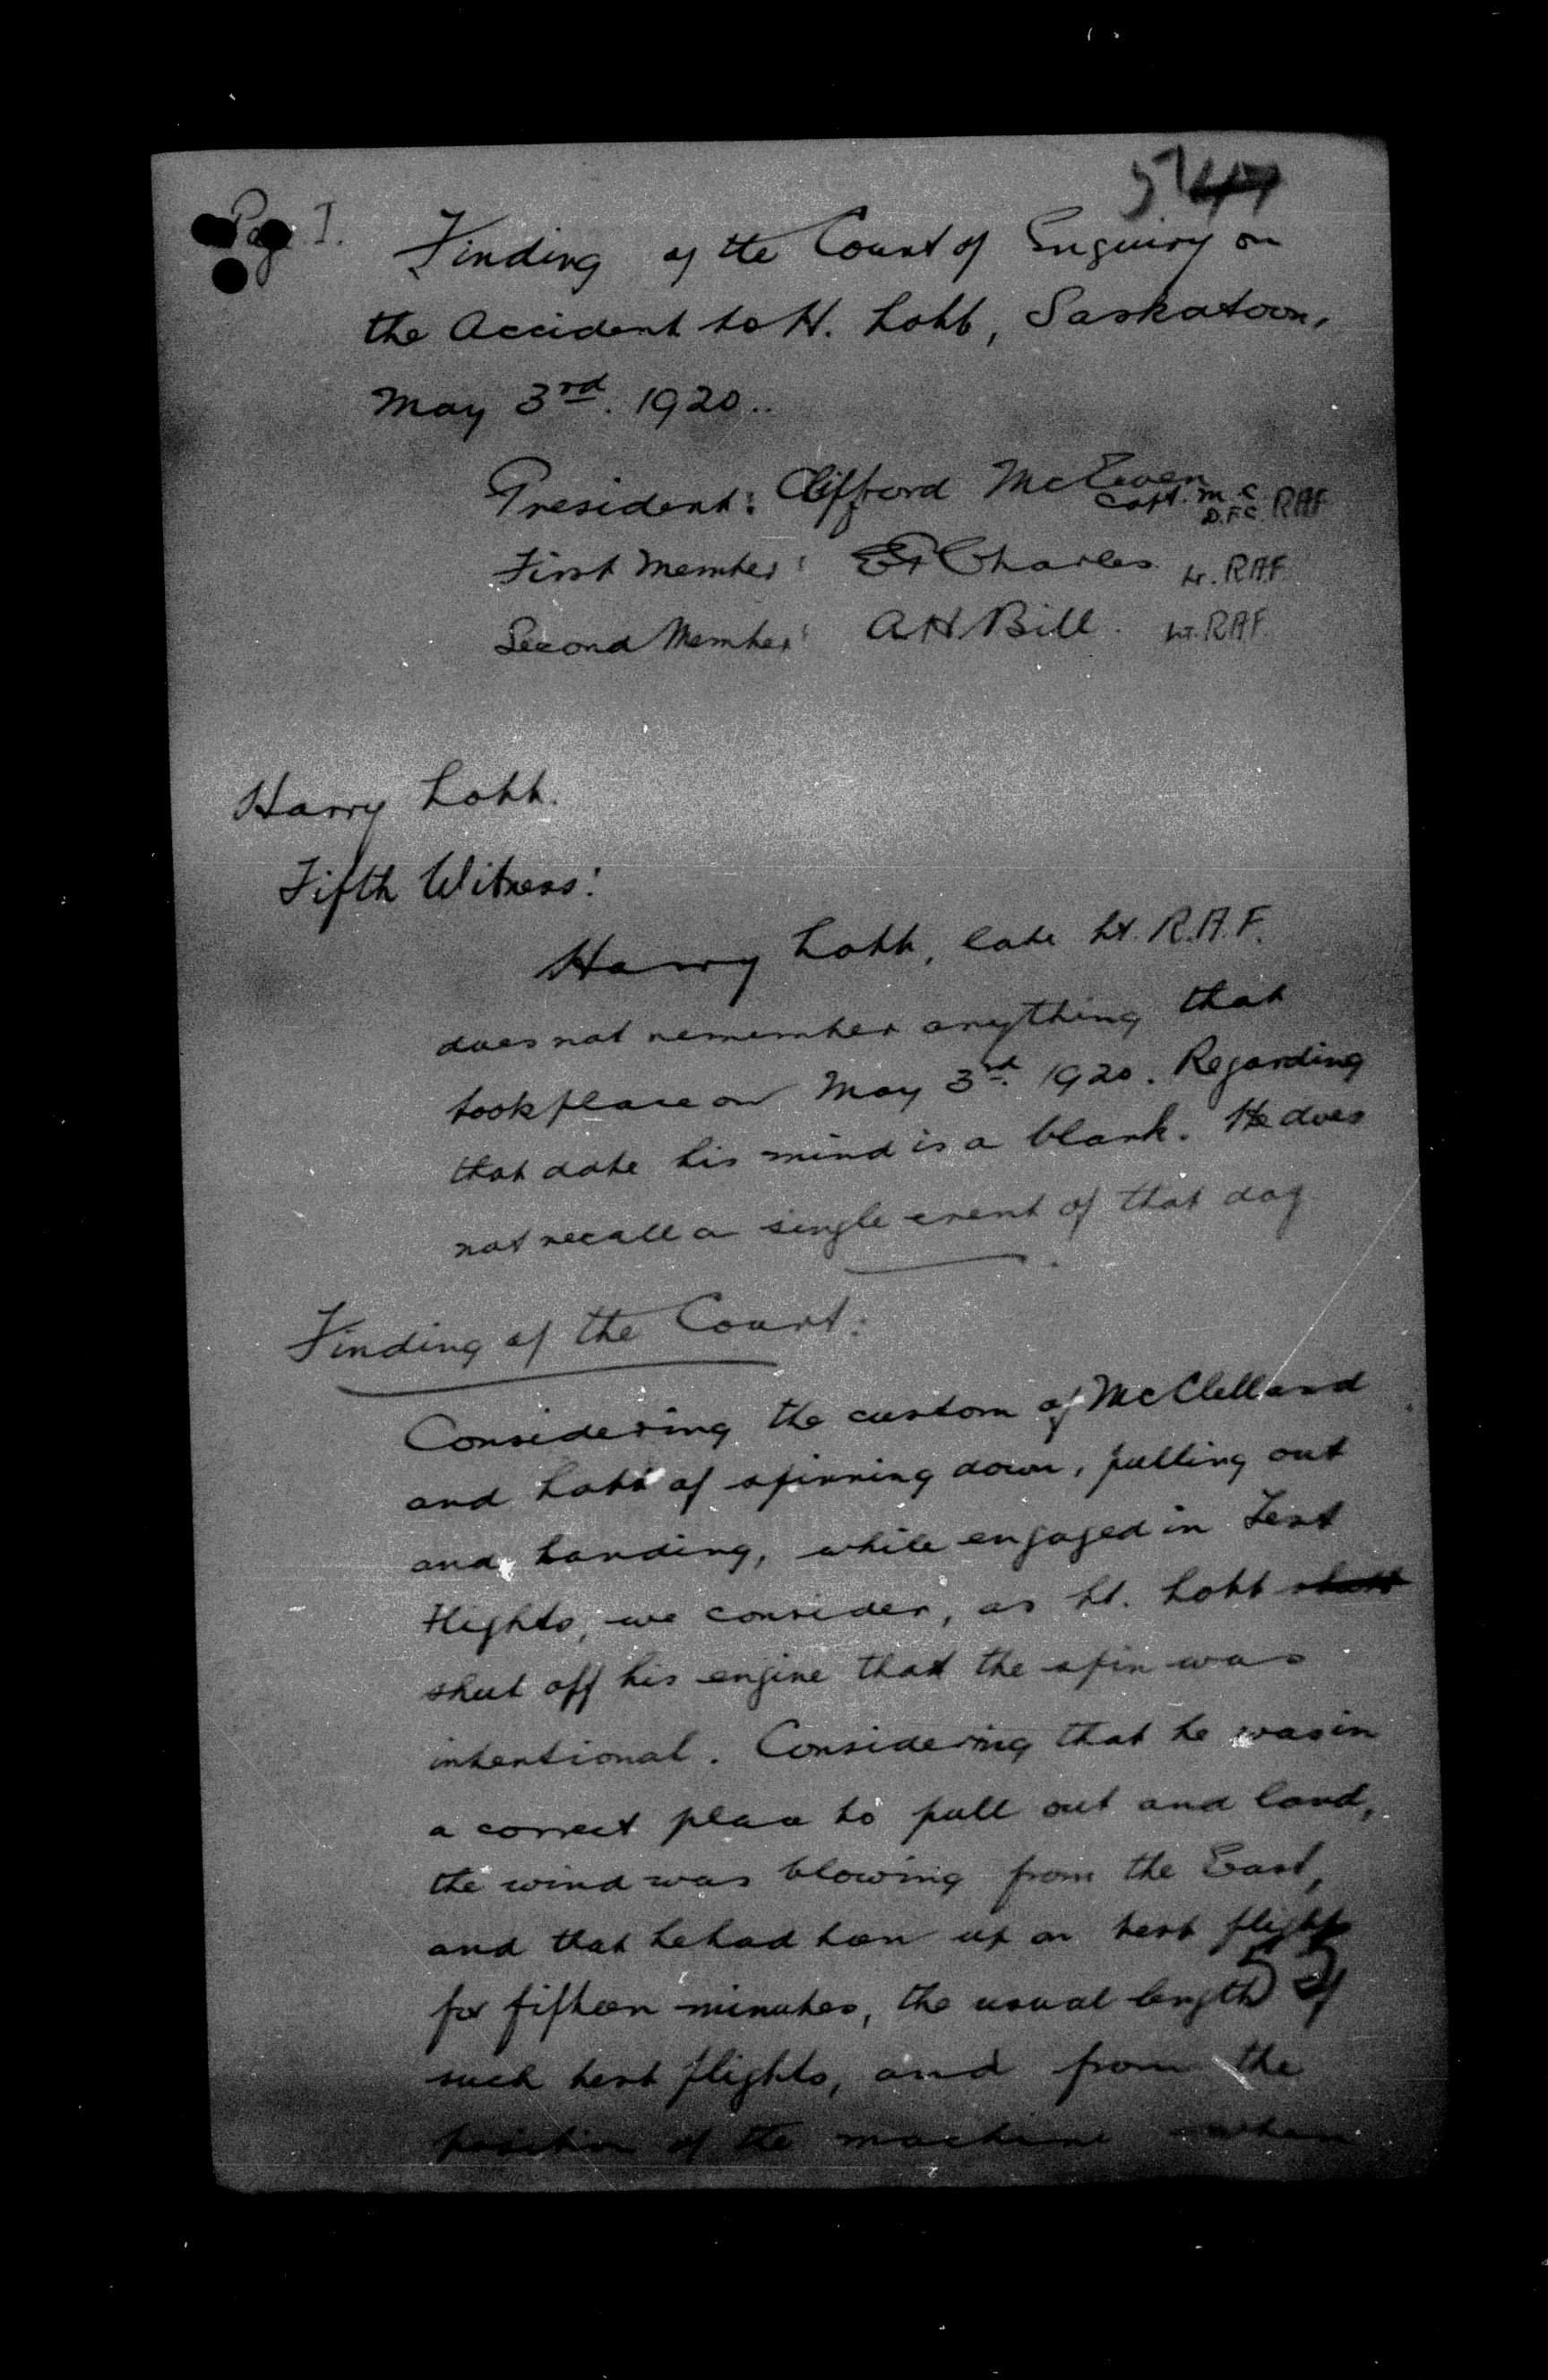 Page I.
Finding of the Court of Enquiry on
the Accident to H. Lobb, Saskatoon,
May 3rd. 1920..
President: Clifford McEwen Capt. M.C. D.F.C. RAF
First Member: Charles Lt. R.A.F.
Second Member: A H Bill. Lt. RAF.
Harry Lobb.
Fifth Witness:
Harry Lobb, late Lt. R.A.F.
does not remember anything that
took place on May 3rd. 1920. Regarding
that date his mind is a blank. He does
not recall a single event of that day.
Finding of the Court:
Considering the custom of McClelland
and Lobb of spinning down, pulling out
and landing, while engaged in Test
flights, we consider, as Lt. Lobb
shut off his engine that the spin was
intentional. Considering that he was in
a correct place to pull out and land,
the wind was blowing from the East,
and that he had been up on test flight
for fifteen minutes, the usual length of
such test flights, and from the
position of the machine when